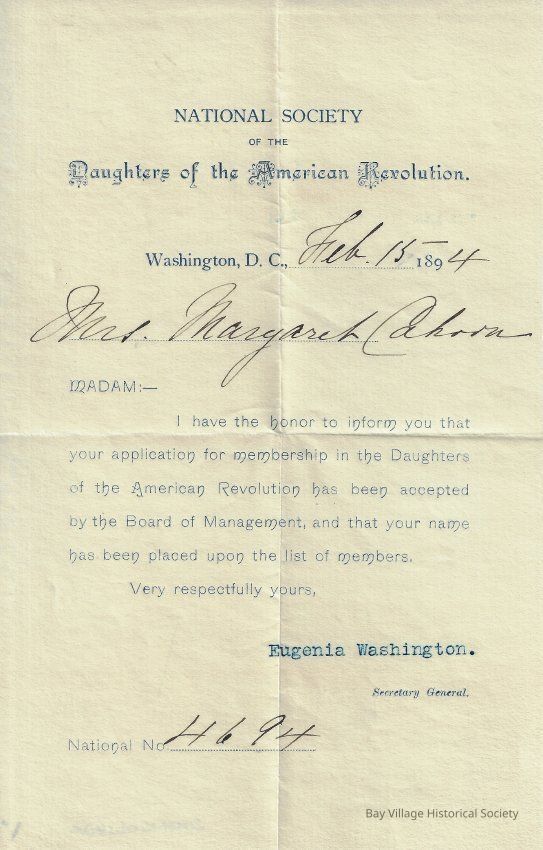 NATIONAL SOCIETY
OF THE
Daughters of the American Revolution.
Washington, D. C., Feb. 15 1894
Mrs. Margaret Cahoon
MADAM:—
I have the honor to inform you that
your application for membership in the Daughters
of the American Revolution has been accepted
by the Board of Management, and that your name
has been placed upon the list of members.
Very respectfully yours,
Eugenia Washington.
Secretary General.
National No 4694
Bay Village Historical Society